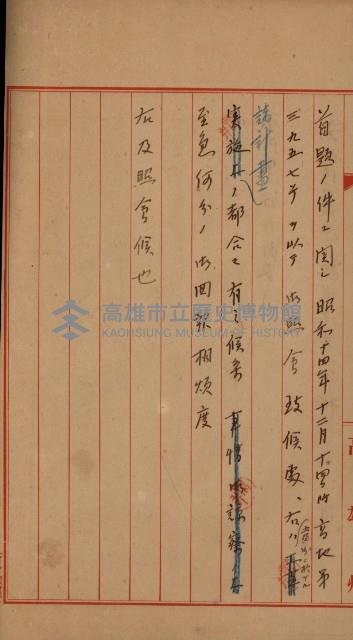 首題ノ件ニ関シ昭和十四年十二月十四日附高地第
三九五七号ヲ以テ御照会致候処、右ハ
諸計畫
実施ノ都合モ有之候条
至急何分ノ御回報相煩度
右及照会候也
高雄市立歷史博物館
KAOHSIUNG MUSEUM OF HISTORY
高雄州